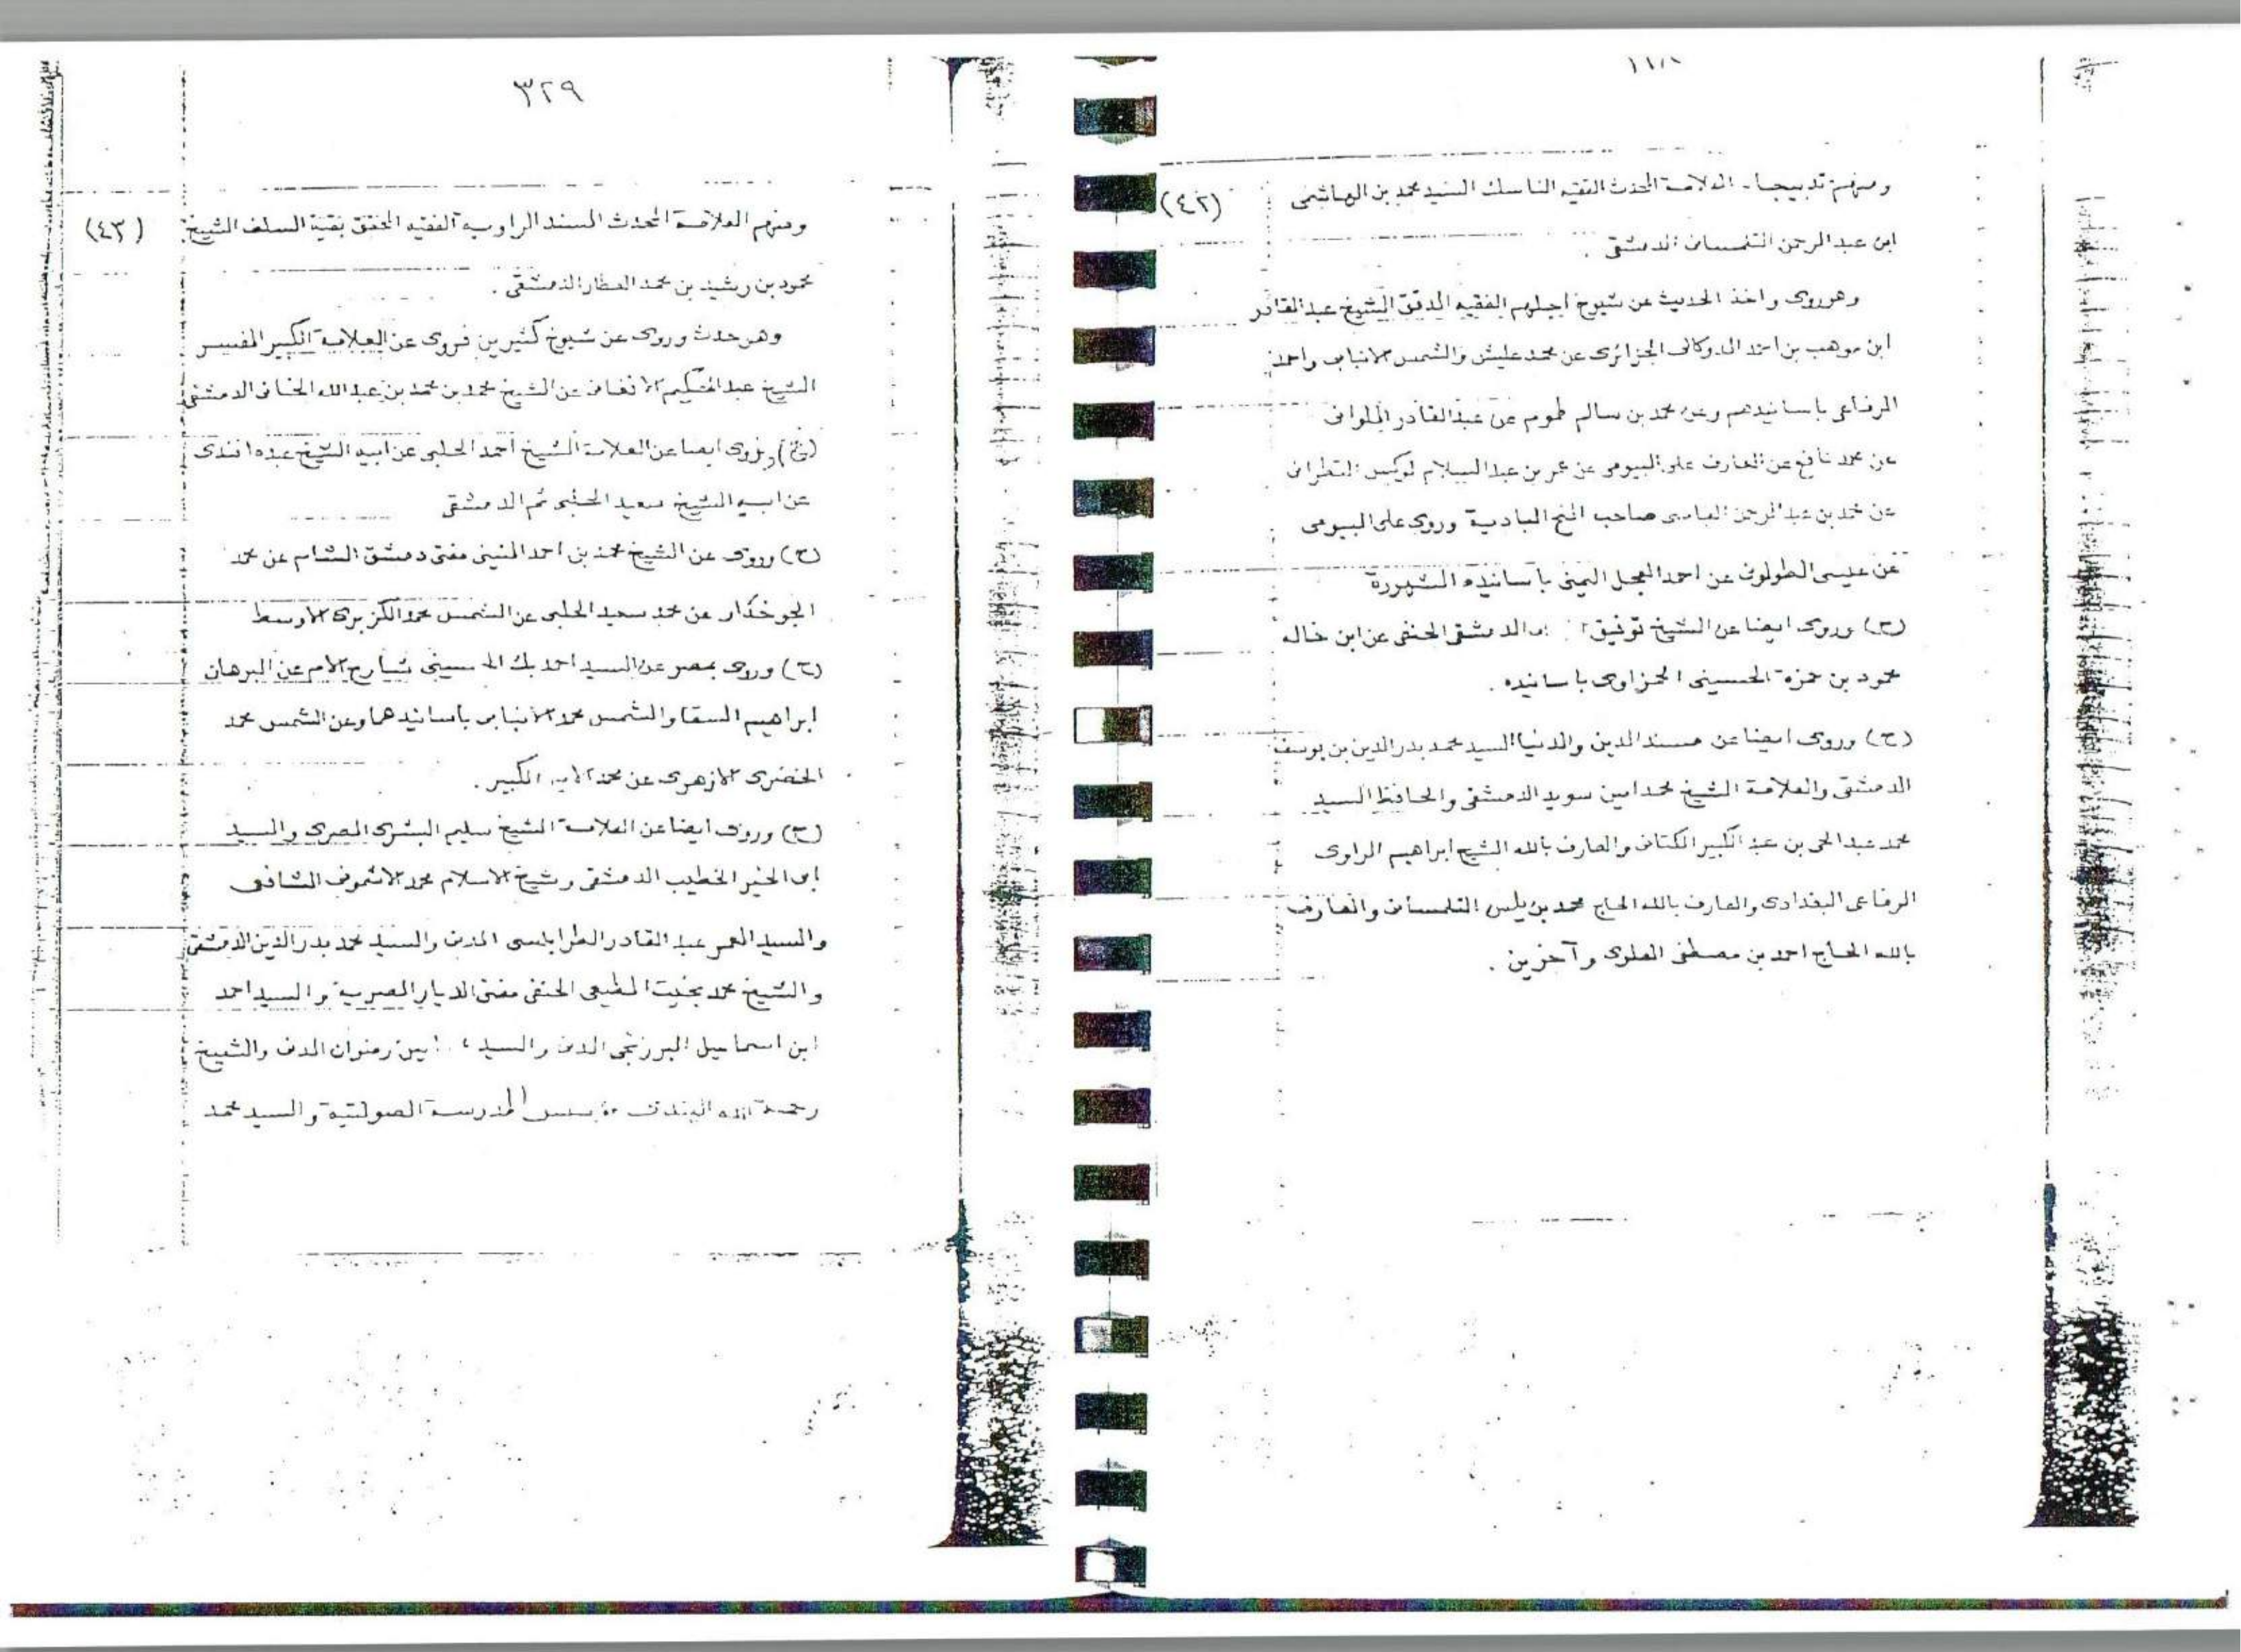 (٤٢)
ومنهم تدبيجا - العلامة المحدث الفقيه الناسك السيد محمد بن الهاشمي
ابن عبد الرحمن التلمساني الدمشقي .
وهو روى واخذ الحديث عن شيوخ اجلهم الفقيه المدقق الشيخ عبد القادر
ابن موهب بن احمد الدوكالى الجزائرى عن محمد عليش والشمس الانبابى واحمد
الرفاعى باسانيدهم وعن محمد بن سالم طموم عن عبد القادر
عن محمد نافع عن العارف على البيومى عن عمر بن عبد السلام التطوانى
عن محمد بن عبد الرحمن الفاسى صاحب المنح البادية وروى على البيومى
عن عيسى الطولونى عن احمد العجل اليمنى بأسانيده الشهيرة
(ح) وروى ايضا عن الشيخ توفيق الدمشقى الحنفى عن ابن خاله
محمود بن حمزة الحسينى الحمزاوى باسانيده .
(ح) وروى ايضا عن مسند الدين والدنيا السيد محمد بدر الدين بن يوسف
الدمشقى والعلامة الشيخ محمد امين سويد الدمشقى والحافظ السيد
محمد عبد الحى بن عبد الكبير الكتانى والعارف بالله الشيخ ابراهيم الراوى
الرفاعى البغدادى والعارف بالله الحاج محمد بن يلس التلمسانى والعارف
بالله الحاج احمد بن مصطفى العلوى وآخرين .
٣٢٩
(٤٣)
ومنهم العلامة المحدث المسند الراوية الفقيه المحقق بقية السلف الشيخ
محمود بن رشيد بن محمد العطار الدمشقى .
وهو حدث وروى عن شيوخ كثيرين فروى عن العلامة الكبير المفسر
الشيخ عبد الحكيم الافغانى عن الشيخ محمد بن محمد بن عبد الله الخانى الدمشقى
(ح) ويروى ايضا عن العلامة الشيخ احمد الحلبى عن ابيه الشيخ عبده افندى
عن ابيه الشيخ سعيد الحلبى ثم الدمشقى
(ح) وروى عن الشيخ محمد بن احمد المنينى مفتى دمشق الشام عن محمد
الجوخدار عن محمد سعيد الحلبى عن الشمس محمد الكزبرى الاوسط
(ح) وروى بمصر عن السيد احمد بك الحسينى شارح الام عن البرهان
ابراهيم السقا والشمس محمد الانبابى باسانيدهما وعن الشمس محمد
الخضرى الازهرى عن محمد الامير الكبير .
(ح) وروى ايضا عن العلامة الشيخ سليم البشرى المصرى والسيد
ابى الخير الخطيب الدمشقى وشيخ الاسلام محمد الاشمونى الشافعى
والسيد المعمر عبد القادر الطرابلسى المدنى والسيد محمد بدر الدين الدمشقى
والشيخ محمد بخيت المطيعى الحنفى مفتى الديار المصرية والسيد احمد
ابن اسماعيل البرزنجى المدنى والسيد امين رضوان المدنى والشيخ
رحمة الله الهندى مؤسس المدرسة الصولتية والسيد محمد